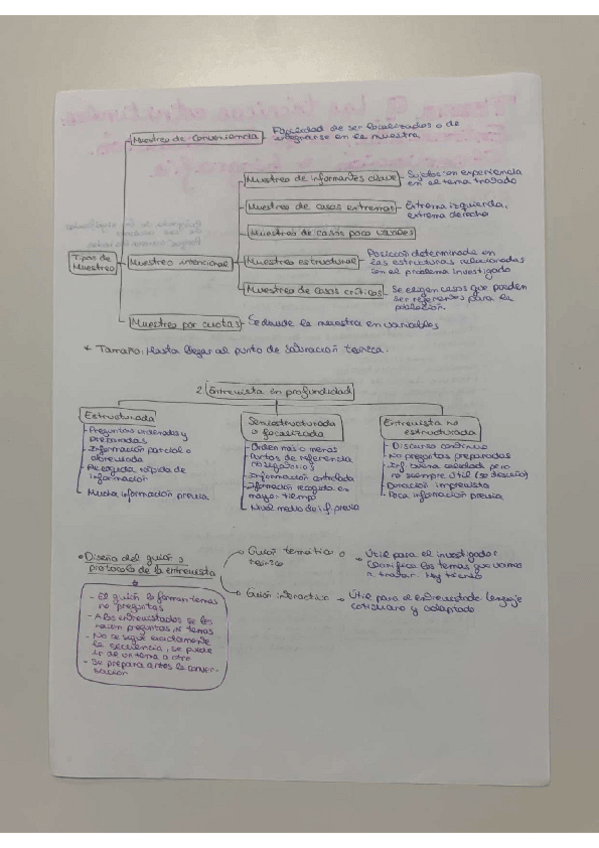 Muestreo de conveniencia
Facilidad de ser localizados o de
integrarse en la muestra
Muestreo de informantes clave
Sujetos con experiencia
en el tema tratado
Muestreo de casos extremos
Extrema izquierda,
extrema derecha
Muestreo de casos poco usuales
Tipos de
Muestreo
Muestreo intencional
Muestreo estructural
Posición determinada en
las estructuras relacionadas
con el problema investigado
Muestreo de casos críticos
Se eligen casos que pueden
ser referentes para la
población.
Muestreo por cuotas
Se divide la muestra en variables
* Tamaño: Hasta llegar al punto de saturación teórica.
2. Entrevista en profundidad
Estructurada
- Preguntas ordenadas y
preparadas
- Información parcial o
abreviada
- Recogida rápida de
información
- Mucha información previa
Semiestructurada
o focalizada
- Orden más o menos
antes de referencia
- Información controlada
- Información recogida en
mayor tiempo
- Nivel medio de inf. previa
Entrevista no
estructurada
- Discurso continuo
- No preguntas preparadas
- Inf. buena calidad pero
no siempre útil (se desvía)
- Duración imprevista
- Poca información previa
• Diseño del guión o
protocolo de la entrevista
Guión temático o
teórico
Útil para el investigador.
Clarifica los temas que vamos
a tratar. Muy técnico
Guión interactivo
Útil para el entrevistado. Lenguaje
cotidiano y adaptado
- El guión lo forman temas
no preguntas
- A los entrevistados se les
hacen preguntas, no temas
- No se sigue exactamente
la secuencia, se puede
ir de un tema a otro
- Se prepara antes la conver-
sación